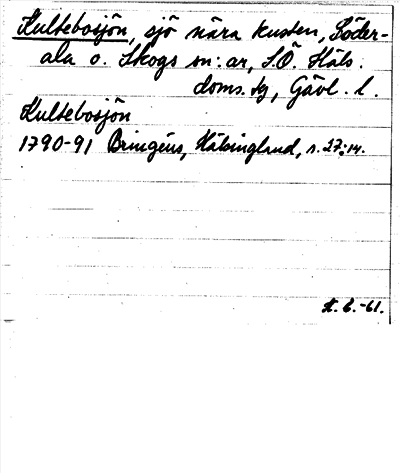 Kultebosjön, sjö nära kusten, Söder-
ala o. Skogs sn:ar, S.Ö. Häls.
doms. tg, Gävl. l.
Kultebosjön
1790-91 Bringéus, Hälsingland, s. 27:14.
6.-61.